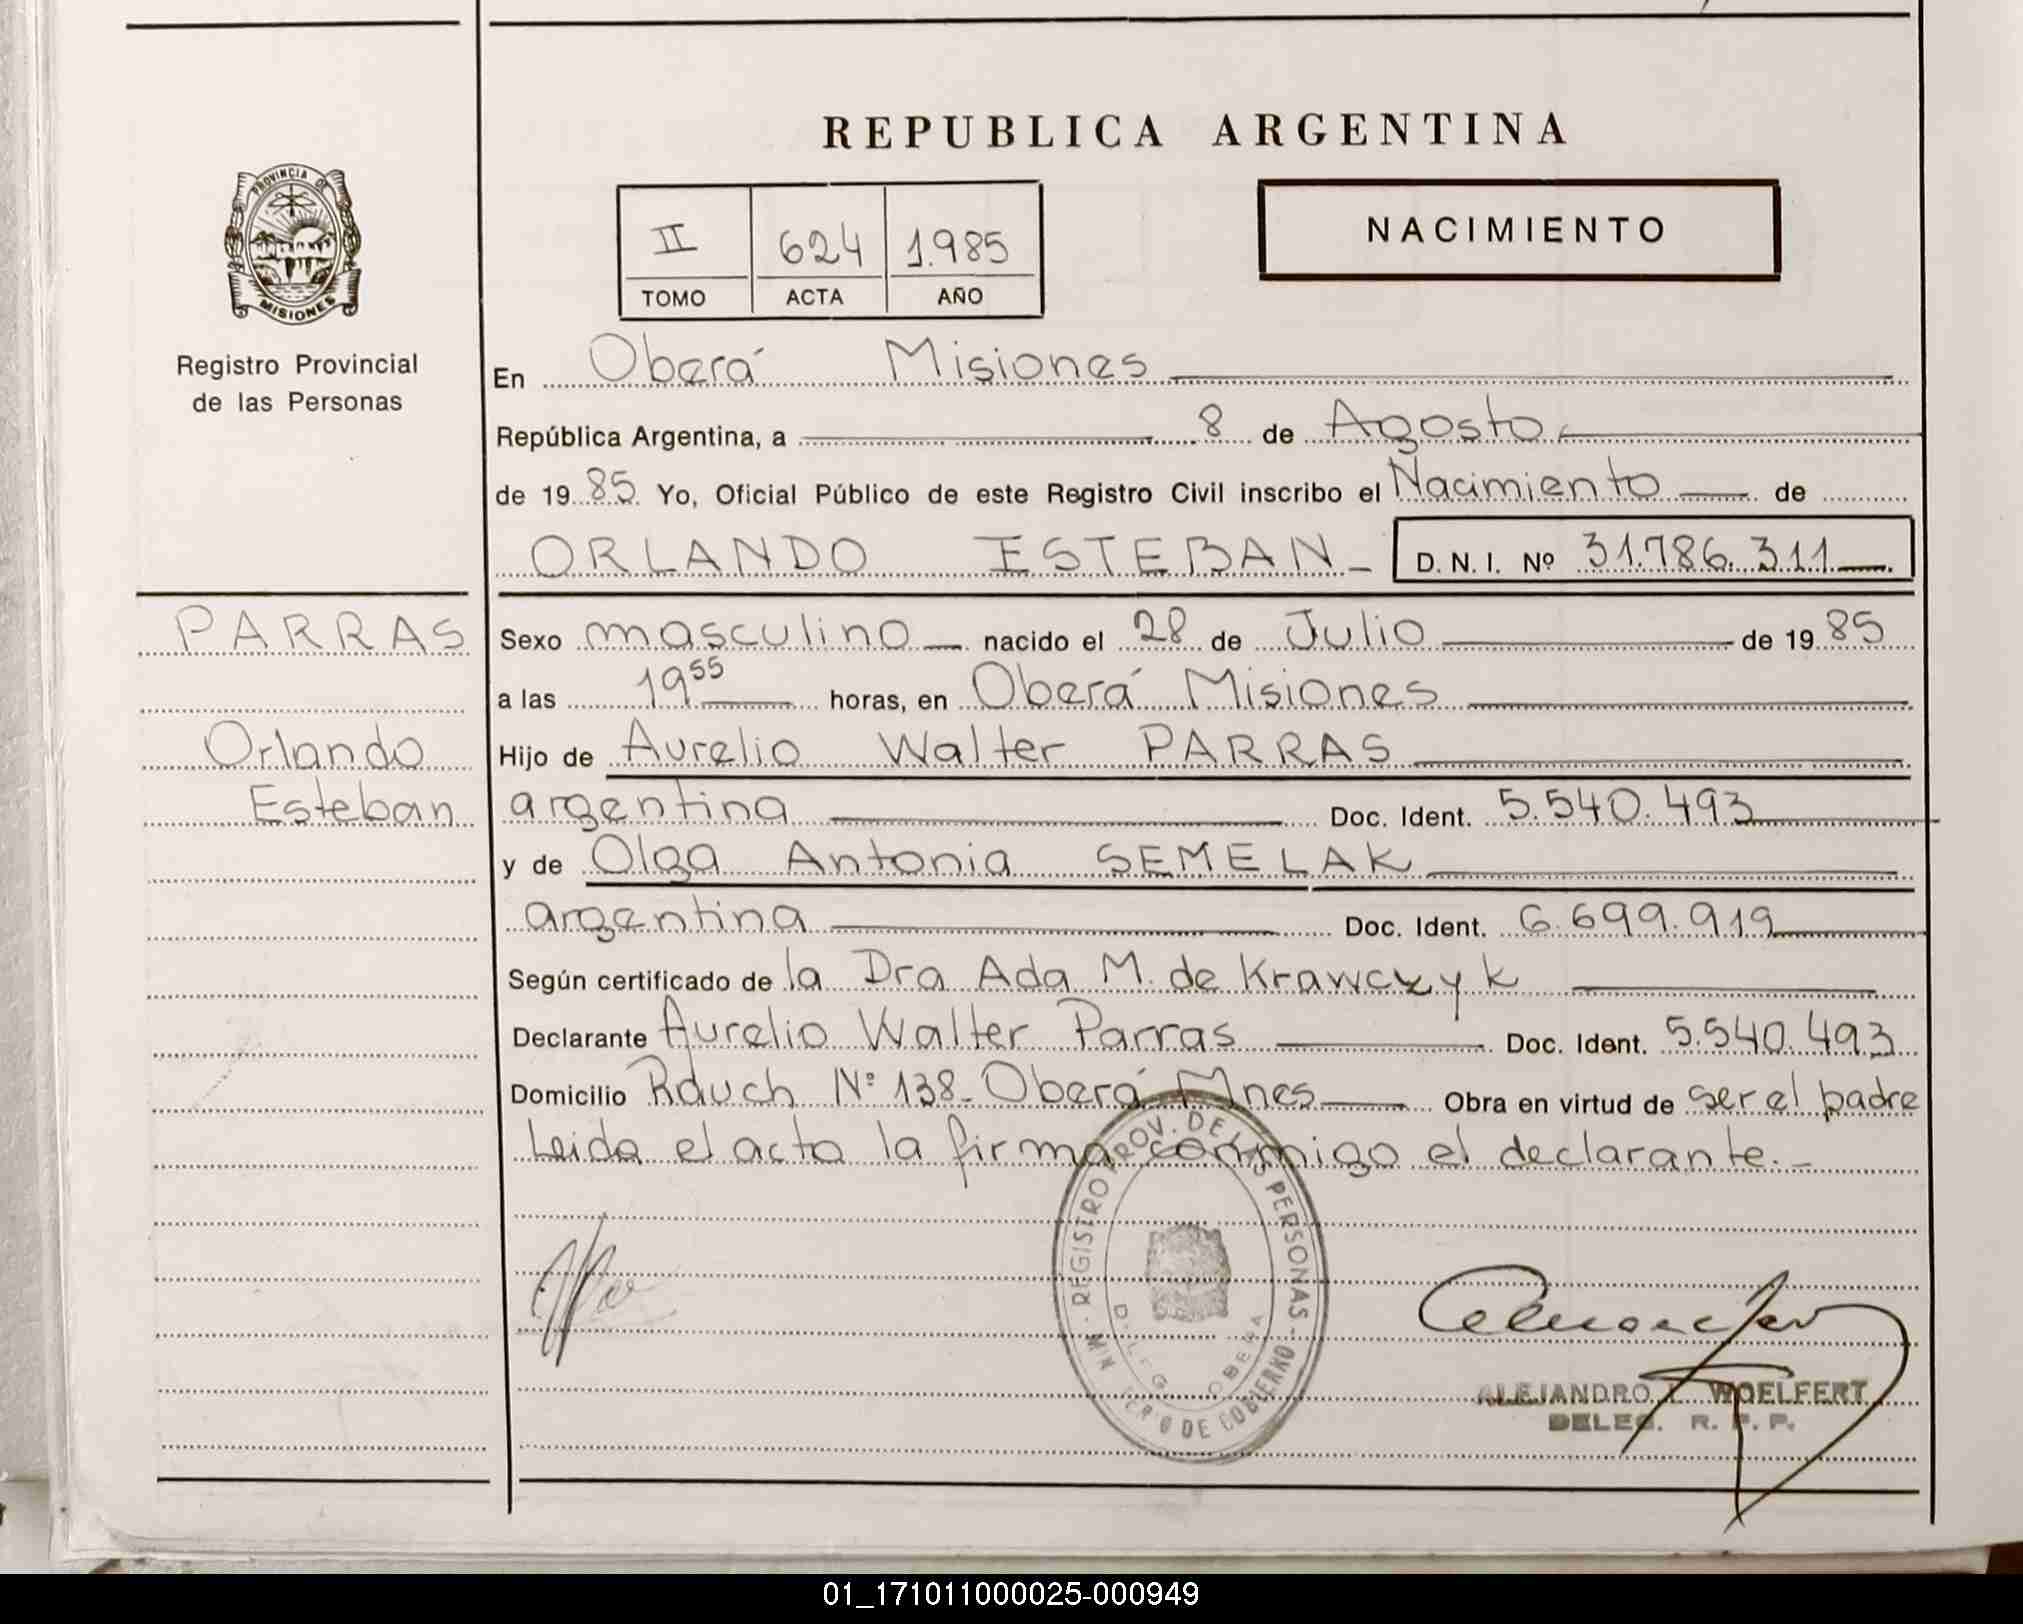 REPUBLICA ARGENTINA
PROVINCIA DE
MISIONES
Registro Provincial
de las Personas
II 624 1.985
TOMO ACTA AÑO
NACIMIENTO
En Oberá Misiones
República Argentina, a 8 de Agosto
de 19 85 Yo, Oficial Público de este Registro Civil inscribo el Nacimiento de
ORLANDO ESTEBAN D.N.I. Nº 31.786.311
PARRAS
Orlando
Esteban
Sexo masculino nacido el 28 de Julio de 19 85
a las 19 55 horas, en Oberá Misiones
Hijo de Aurelio Walter PARRAS
argentina Doc. Ident. 5.540.493
y de Olga Antonia SEMELAK
argentina Doc. Ident. 6.699.919
Según certificado de la Dra Ada M. de Krawczyk
Declarante Aurelio Walter Parras Doc. Ident. 5.540.493
Domicilio Rauch Nº 138- Oberá Mnes Obra en virtud de ser el padre
Leida el acta la firma conmigo el declarante.-
REGISTRO PROV. DE LAS PERSONAS -
DELEG. OBERA
MINISTERIO DE GOBIERNO
ALEJANDRO WOELFERT
DELEG. R. P. P.
01_171011000025-000949